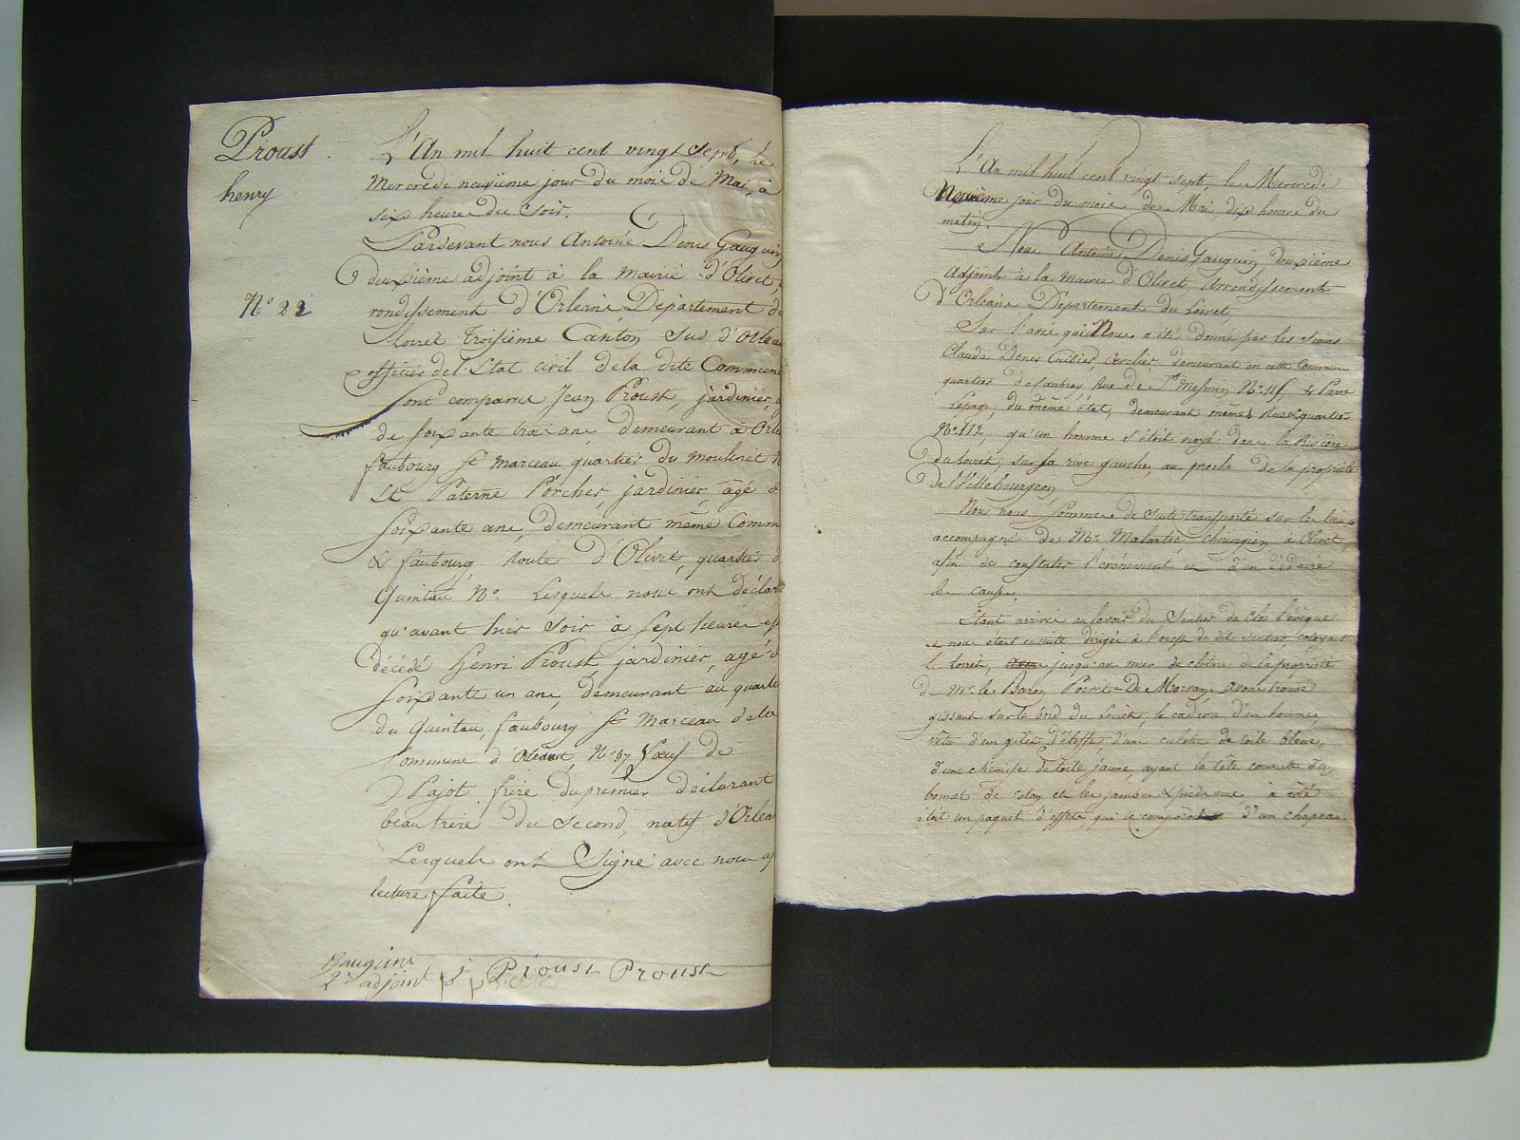 Proust
henry
N° 22
L'An mil huit cent vingt sept, le
Mercredi neuvieme jour du mois de Mai, à
six heure du soir.
Pardevant nous Antoine Denis Gauguin
deuxième adjoint à la mairie d'Olivet,
rondissement d'Orleans Departement du
Loiret troisieme Canton Sud d'Orlea
officier de l'Etat civil de la dite Commune
sont comparu Jean Proust, jardinier,
de soixante trois ans demeurant à Orle
faubourg St Marceau, quartier du moulinet
Et Paterne Porcher, jardinier, âgé d
soixante ans, demeurant même Comm
& faubourg, route d'Olivet, quartier d
Quintau N°. Lesquels nous ont déclaré
qu'avant hier soir à sept heures
décédé Henri Proust jardinier, agé d
soixante un ans, demeurant au quartie
du Quintau, faubourg St Marceau de la
Commune d'Orléans, N° 37 Veuf de
Pajot frère du premier déclarant
beau frère du second, natif d'Orléa
Lesquels ont Signé avec nous
lecture faite.
Gauguin
2e adjoint
j Proust Proust
L'An mil huit cent vingt sept, le Mercredi
Neuvième jour du mois de Mai, dix heures du
matin.
Nous Antoine Denis Gauguin, deuxième
Adjoint à la Mairie d'Olivet, Arrondissement
d'Orléans Département du Loiret,
Sur l'avis qui Nous a été donné par les Sieurs
Claude Denis Cerclier demeurant en cette Commune
quartier Rue de St Mesmin N° 115 &
Lepage, du même état, demeurant mêmes Rue & quartier
N° 112, qu'un homme s'étoit noyé dans la Rivière
du Loiret, sur la rive gauche, au proche de la propriété
de Villebourgeon
Nous nous sommes de suite transporté sur les lieux
accompagné de Mr. Malartic chirurgien à Olivet,
afin de constater l'évènement et d'en déduire
la cause.
Etant arrivé au lavoir du Sentier du Clos l'évêque
nous étant ensuite dirigés à l'ouest du dit sentier,
le Loiret, jusqu'au mur de clôture de la propriété
de Mr. le Baron de Morogues avons trouvé
gissant sur le bord du Loiret, le cadavre d'un homme,
vêtu d'un gilet d'étoffe, d'une culotte de toile bleue,
d'une chemise de toile jaune, ayant la tête couverte d'un
bonnet de coton et les jambes & pieds nus à côté
étoit un paquet d'effets qui se composoit d'un chapeau